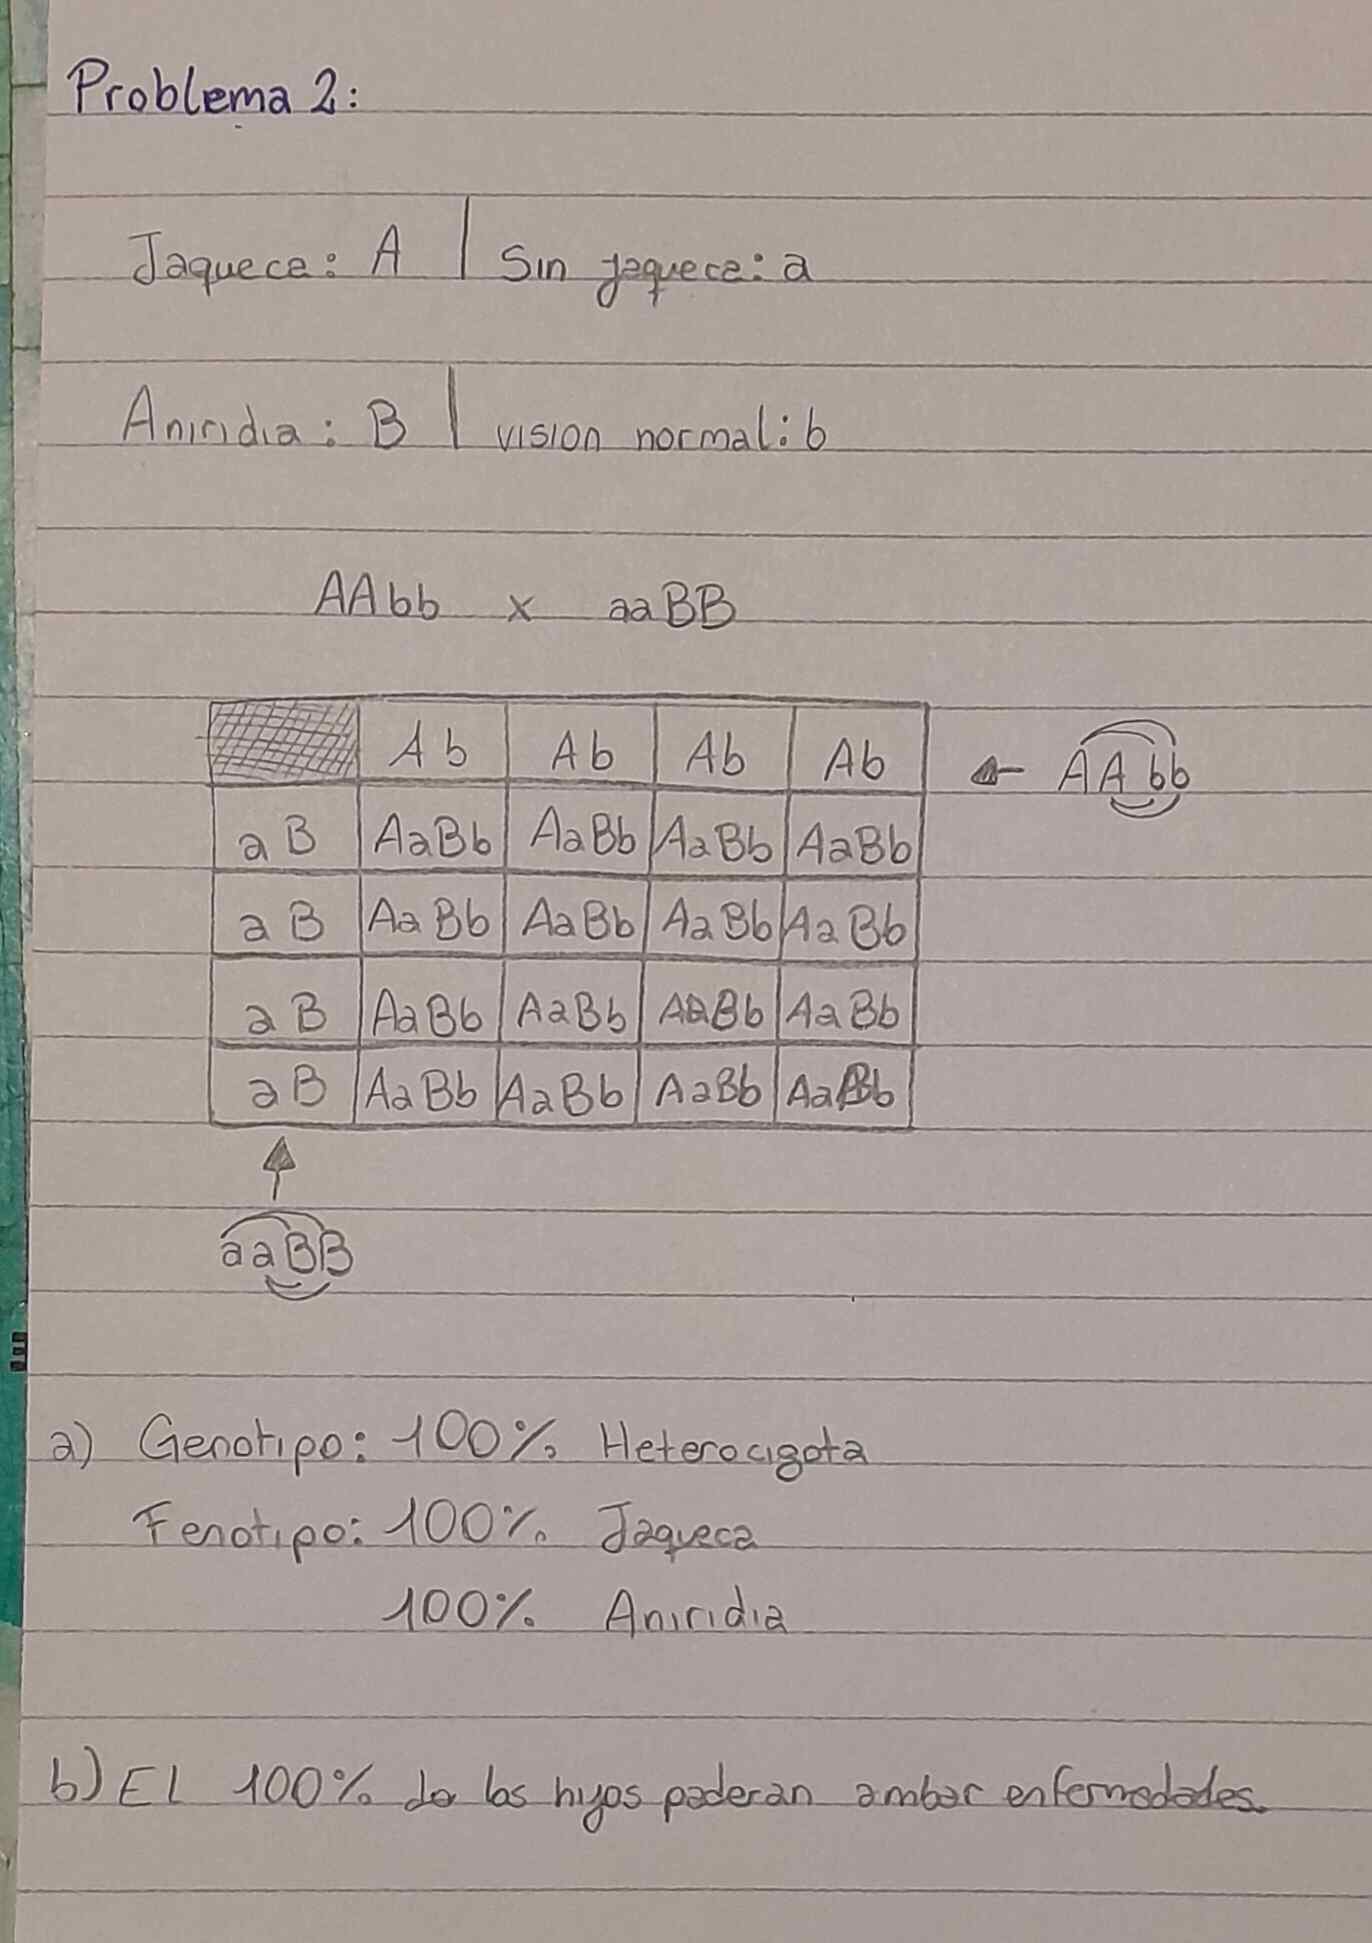 Problema 2:
Jaqueca: A | Sin jaqueca: a
Aniridia: B | vision normal: b
AAbb x aaBB
Ab Ab Ab Ab ← AAbb
aB AaBb AaBb AaBb AaBb
aB AaBb AaBb AaBb AaBb
aB AaBb AaBb AaBb AaBb
aB AaBb AaBb AaBb AaBb
↑
aaBB
a) Genotipo: 100% Heterocigota
Fenotipo: 100% Jaqueca
100% Aniridia
b) El 100% de los hijos paderan ambar enfermedades.